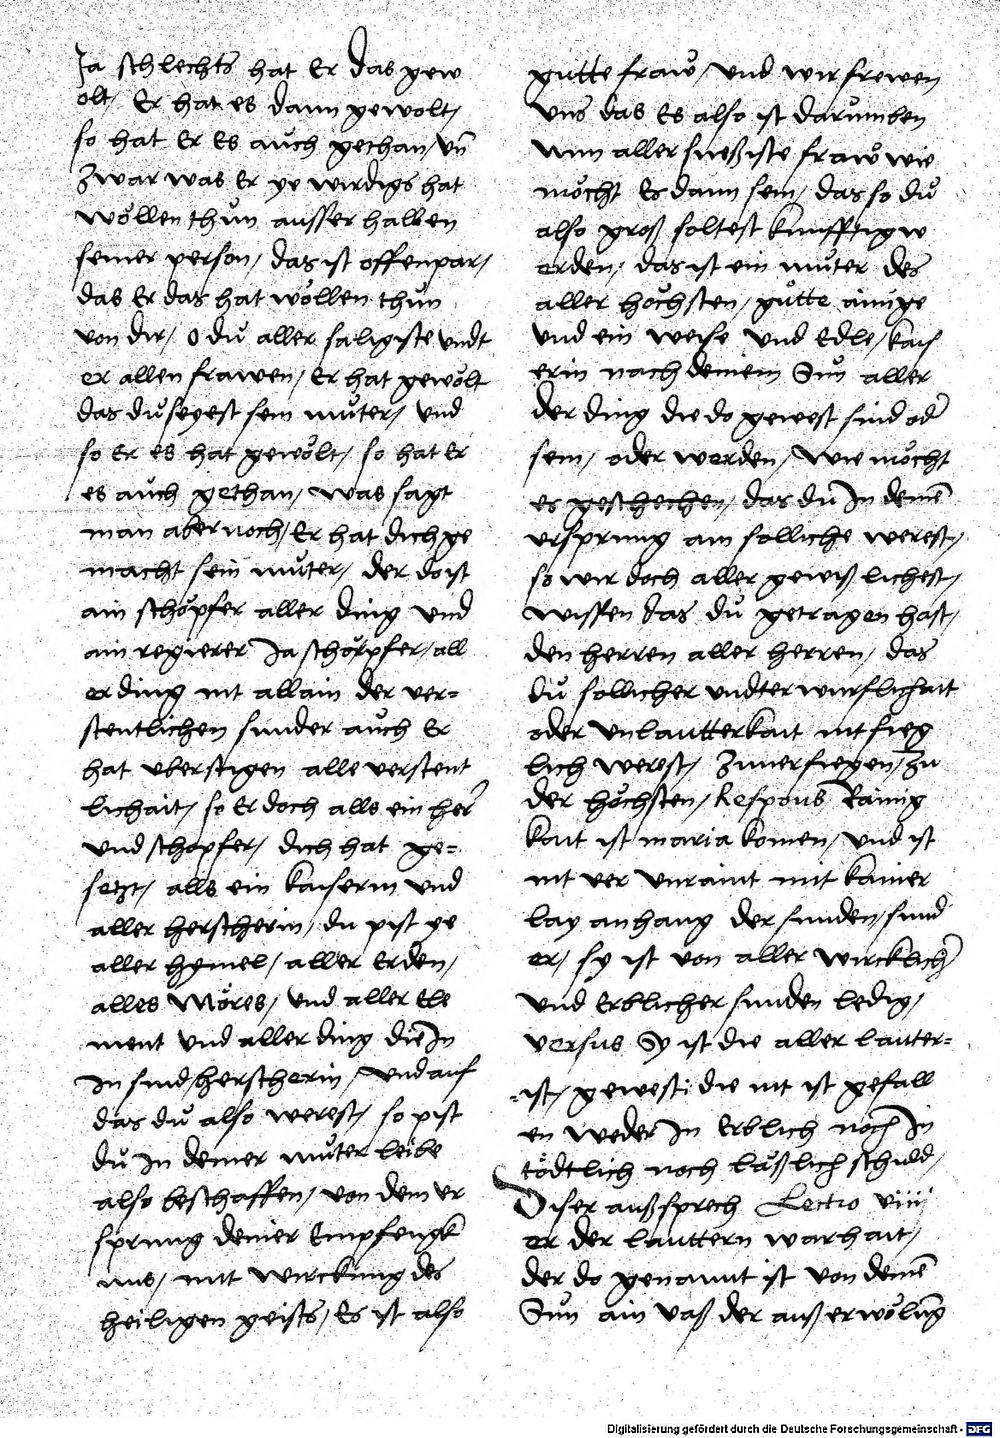 Ja schlechts hat Er das gew
olt/ Er hat es dann gewolt/
so hat Er Es auch gethan/ vn̄
Zwar was Er ye wirdigs hat
wöllen thůn ausserhalben
seiner person/ das ist offenpar/
das Er das hat wöllen thůn
von dir/ o dů aller saligiste vndt
er allen frawen/ Er hat gewölt
das dů seyest sein můter/ vnd
so Er es hat gewölt/ so hat Er
es aůch gethan/ was sagt
man aber noch/ Er hat dich ge
macht sein můter/ der do ist
ain schöpfer aller ding vnd
ain regierer Ja schöpfer/ all
er ding nit allain der ver=
stentlichen sunder aůch Er
hat vberstigen alle verstent
lichait/ so Er doch alls ein her
vnd schopfer/ dich hat ge=
setzt/ alls ein kaiserin vnd
aller herscherin/ du pist ye
aller hymel/ aller Erden/
alles Möres/ vnd aller Ele
ment vnd aller ding die In
In sind/ herscherin/ vnd auf
das dů also werest/ so pist
dů In deiner můter leibe
also beschaffen/ von dem vr
sprung deiner Empfengk
nus/ mit wirckung des
heiligen geists/ Es ist also
gůtte fraw/ vnd wir frewen
vns das Es also ist darůmben
Nun aller sueßiste fraw wie
möcht Es dann sein/ das so dů
also groß soltest kunfftig w
erden/ das ist ein můter des
aller höchsten/ gůtte ainige
vnd ein weise vnd Edle/ kais
erin nach deinem Sůn aller
der ding die do gewest sind od̄
sein/ oder werden/ Wie möcht
es geschechen/ das dů In deinē
vrsprung ain solliche werest/
so wir doch aller gewißlichest/
wissen das dů getragen hast/
den herren aller herren/ das
dů sollicher vndterwurflichait
oder vnlautterkait nit fieg
lich werest/ Zuuerfiegen/ Zu
der höchsten/ Respons Rainig
kait ist maria komen/ vnd ist
nit ver vnraint mit kainer
lay anhang der sunden/ sund
er/ sy ist von aller wircklich̄
vnd Erblicher sunden ledig/
versus Sy ist die aller lauter=
=ist/ gewest: die nit ist gefall
en weder In Erblich noch In
tödtlich noch läßlich schuld/
Diser außsprech Lectio viiii
er der lauttern warhait/
der do genannt ist von deinē
Sůn ain vaß der außerwölūg